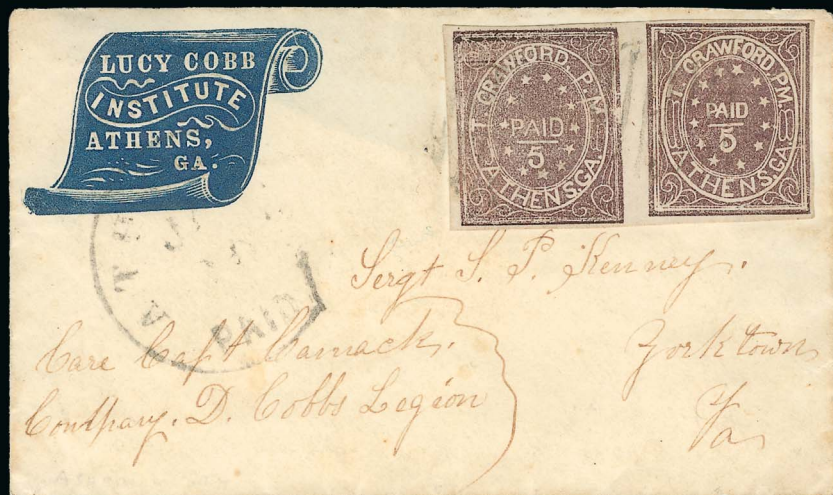 LUCY COBB
INSTITUTE
ATHENS,
GA.
T. CRAWFORD, P.M.
PAID
5
ATHENS, GA.
T. CRAWFORD, P.M.
PAID
5
ATHENS, GA.
PAID
Sergt S. P. Kenney.
Care Capt Camack.
Company. D. Cobbs Legion
Yorktown
Va